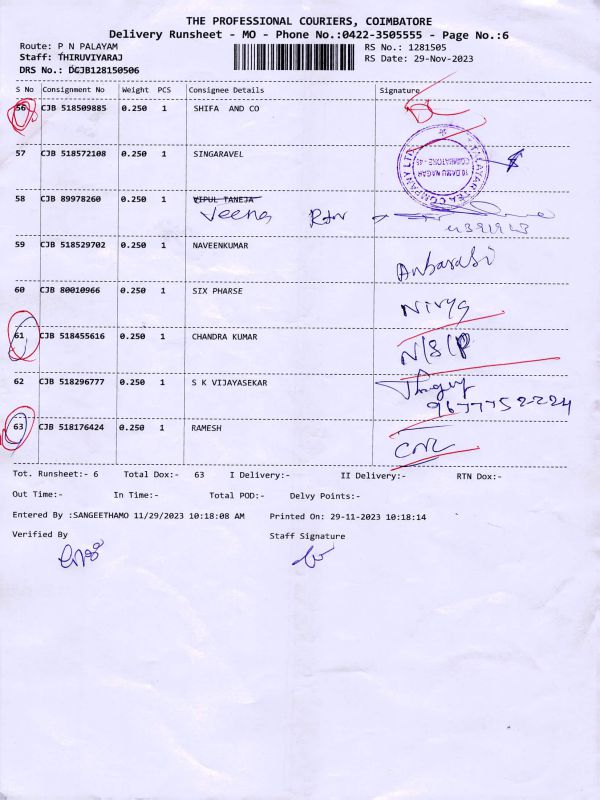 THE PROFESSIONAL COURIERS, COIMBATORE
Delivery Runsheet - MO - Phone No.:0422-3505555 - Page No.:6
Route: P N PALAYAM RS No.: 1281505
Staff: THIRUVIYARAJ RS Date: 29-Nov-2023
DRS No.: DCJB128150506
S No Consignment No Weight PCS Consignee Details Signature
56 CJB 518509885 0.250 1 SHIFA AND CO
57 CJB 518572108 0.250 1 SINGARAVEL
58 CJB 89978260 0.250 1 VIPUL TANEJA
Veena
59 CJB 518529702 0.250 1 NAVEENKUMAR
Anbarasi
60 CJB 80010966 0.250 1 SIX PHARSE
Nivya
61 CJB 518455616 0.250 1 CHANDRA KUMAR
N/S/P
62 CJB 518296777 0.250 1 S K VIJAYASEKAR
9677752224
63 CJB 518176424 0.250 1 RAMESH
Tot. Runsheet:- 6 Total Dox:- 63 I Delivery:- II Delivery:- RTN Dox:-
Out Time:- In Time:- Total POD:- Delvy Points:-
Entered By :SANGEETHAMO 11/29/2023 10:18:08 AM Printed On: 29-11-2023 10:18:14
Verified By Staff Signature